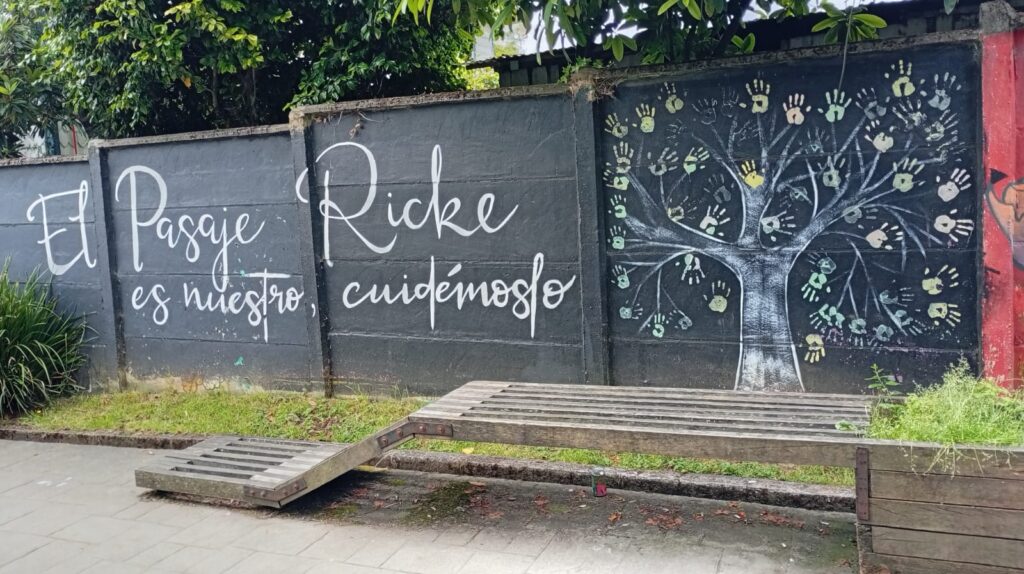 El Pasaje Ricke
es nuestro, cuidémoslo